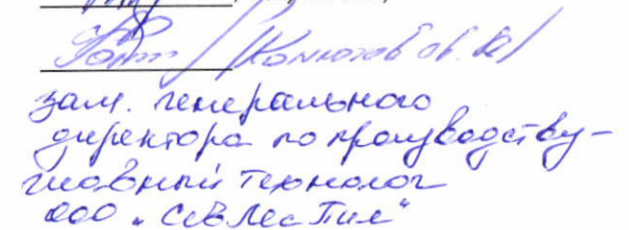 зам. генерального
директора по производству-
главный технолог
ООО "СевЛесПил"